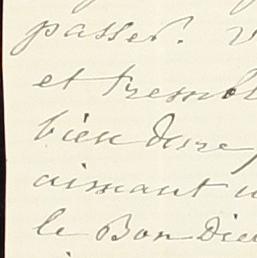 passer. V
et trembl
bien dure,
aimant
le Bon Die